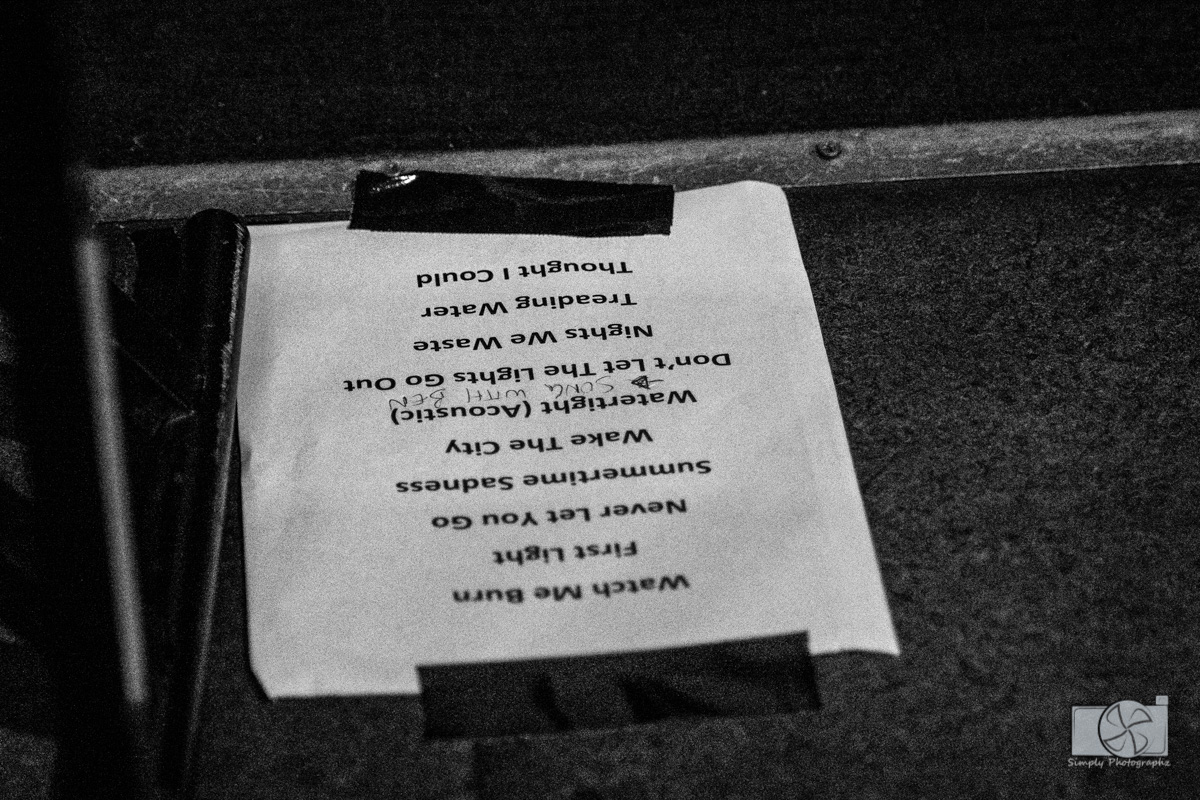 Watch Me Burn
First Light
Never Let You Go
Summertime Sadness
Wake The City
Watertight (Acoustic)
SONG WITH BEN
Don't Let The Lights Go Out
Nights We Waste
Treading Water
Thought I Could
Simply Photographz